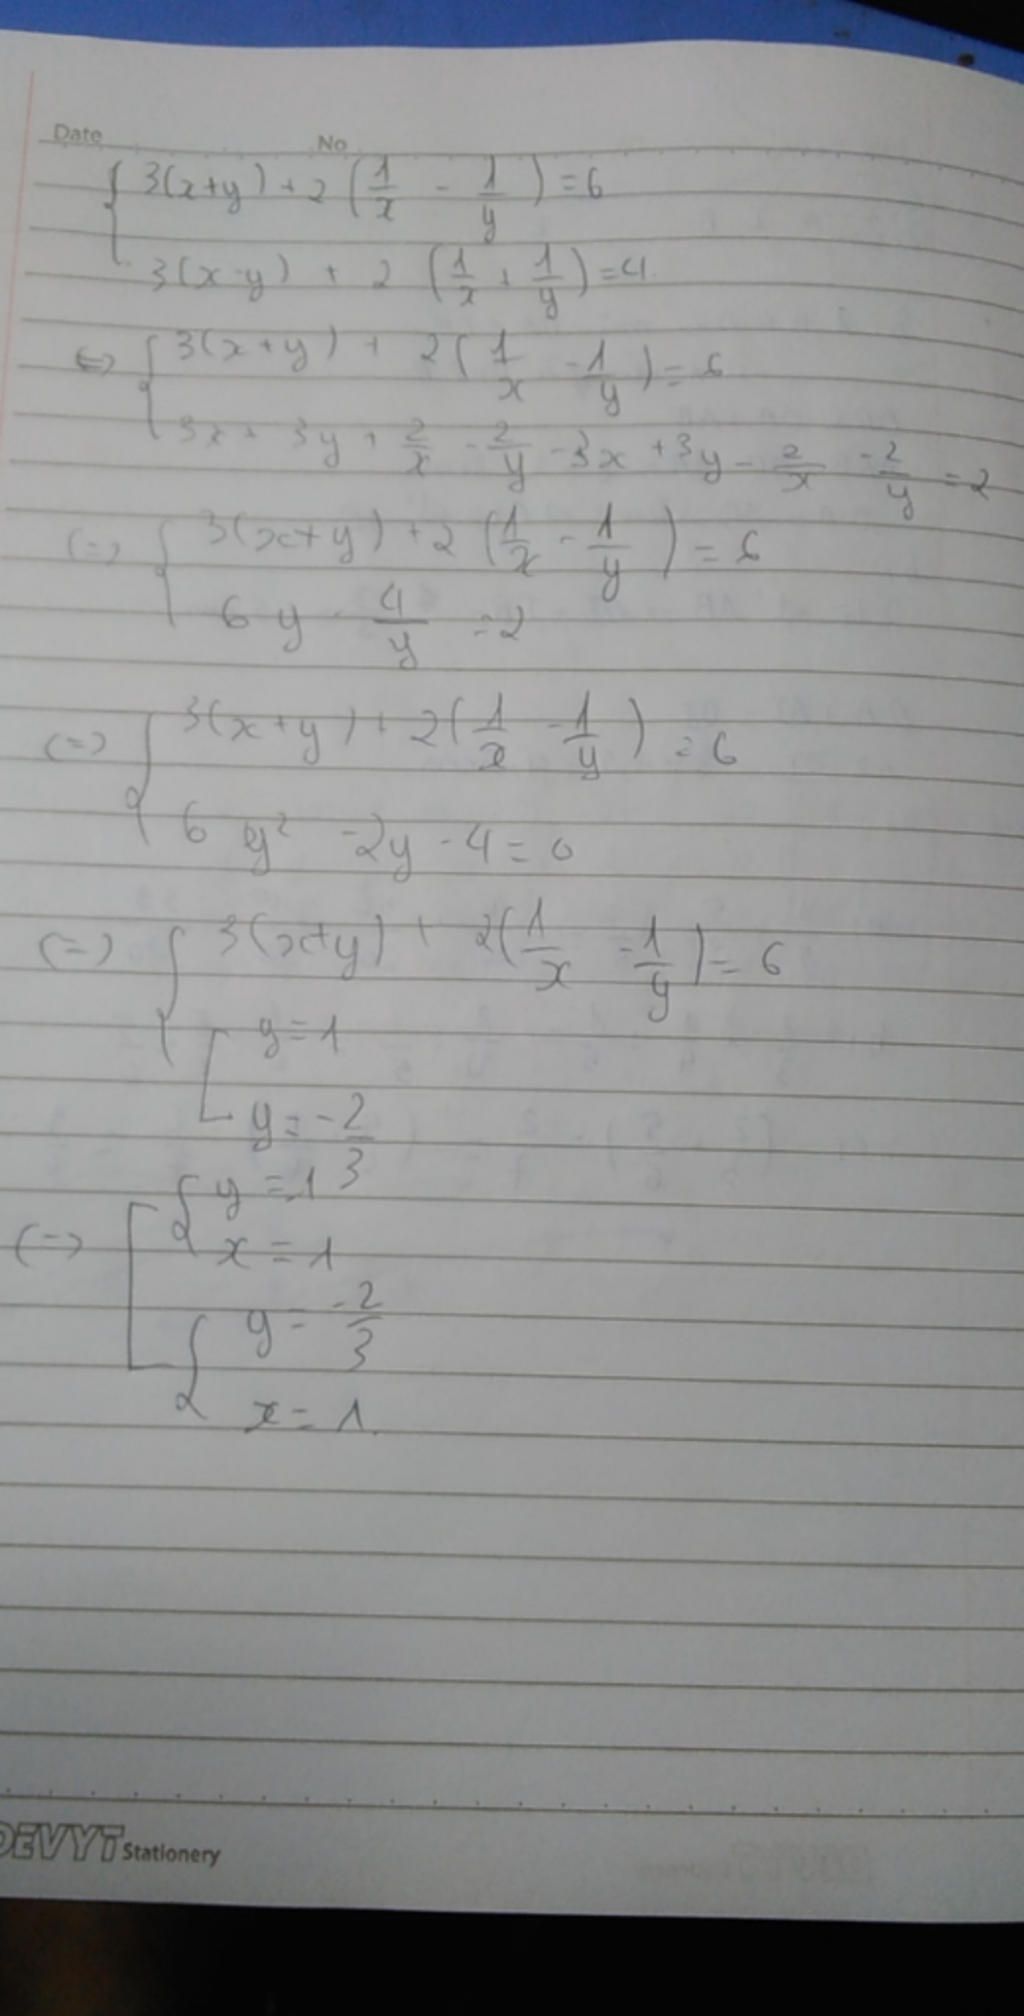 Date No
{ 3(x+y) + 2 (1/x - 1/y) = 6
3(x-y) + 2 (1/x + 1/y) = 4
<=> { 3(x+y) + 2(1/x - 1/y) = 6
3x + 3y + 2/x - 2/y - 3x + 3y - 2/x - 2/y = 2
(=) { 3(x+y) + 2 (1/x - 1/y) = 6
6y - 4/y = 2
(=) { 3(x+y) + 2(1/x - 1/y) = 6
6y² - 2y - 4 = 0
(=) { 3(x+y) + 2(1/x - 1/y) = 6
[ y = 1
y = -2/3
(=) [ { y = 1
x = 1
{ y = -2/3
x = 1.
DEVYT Stationery